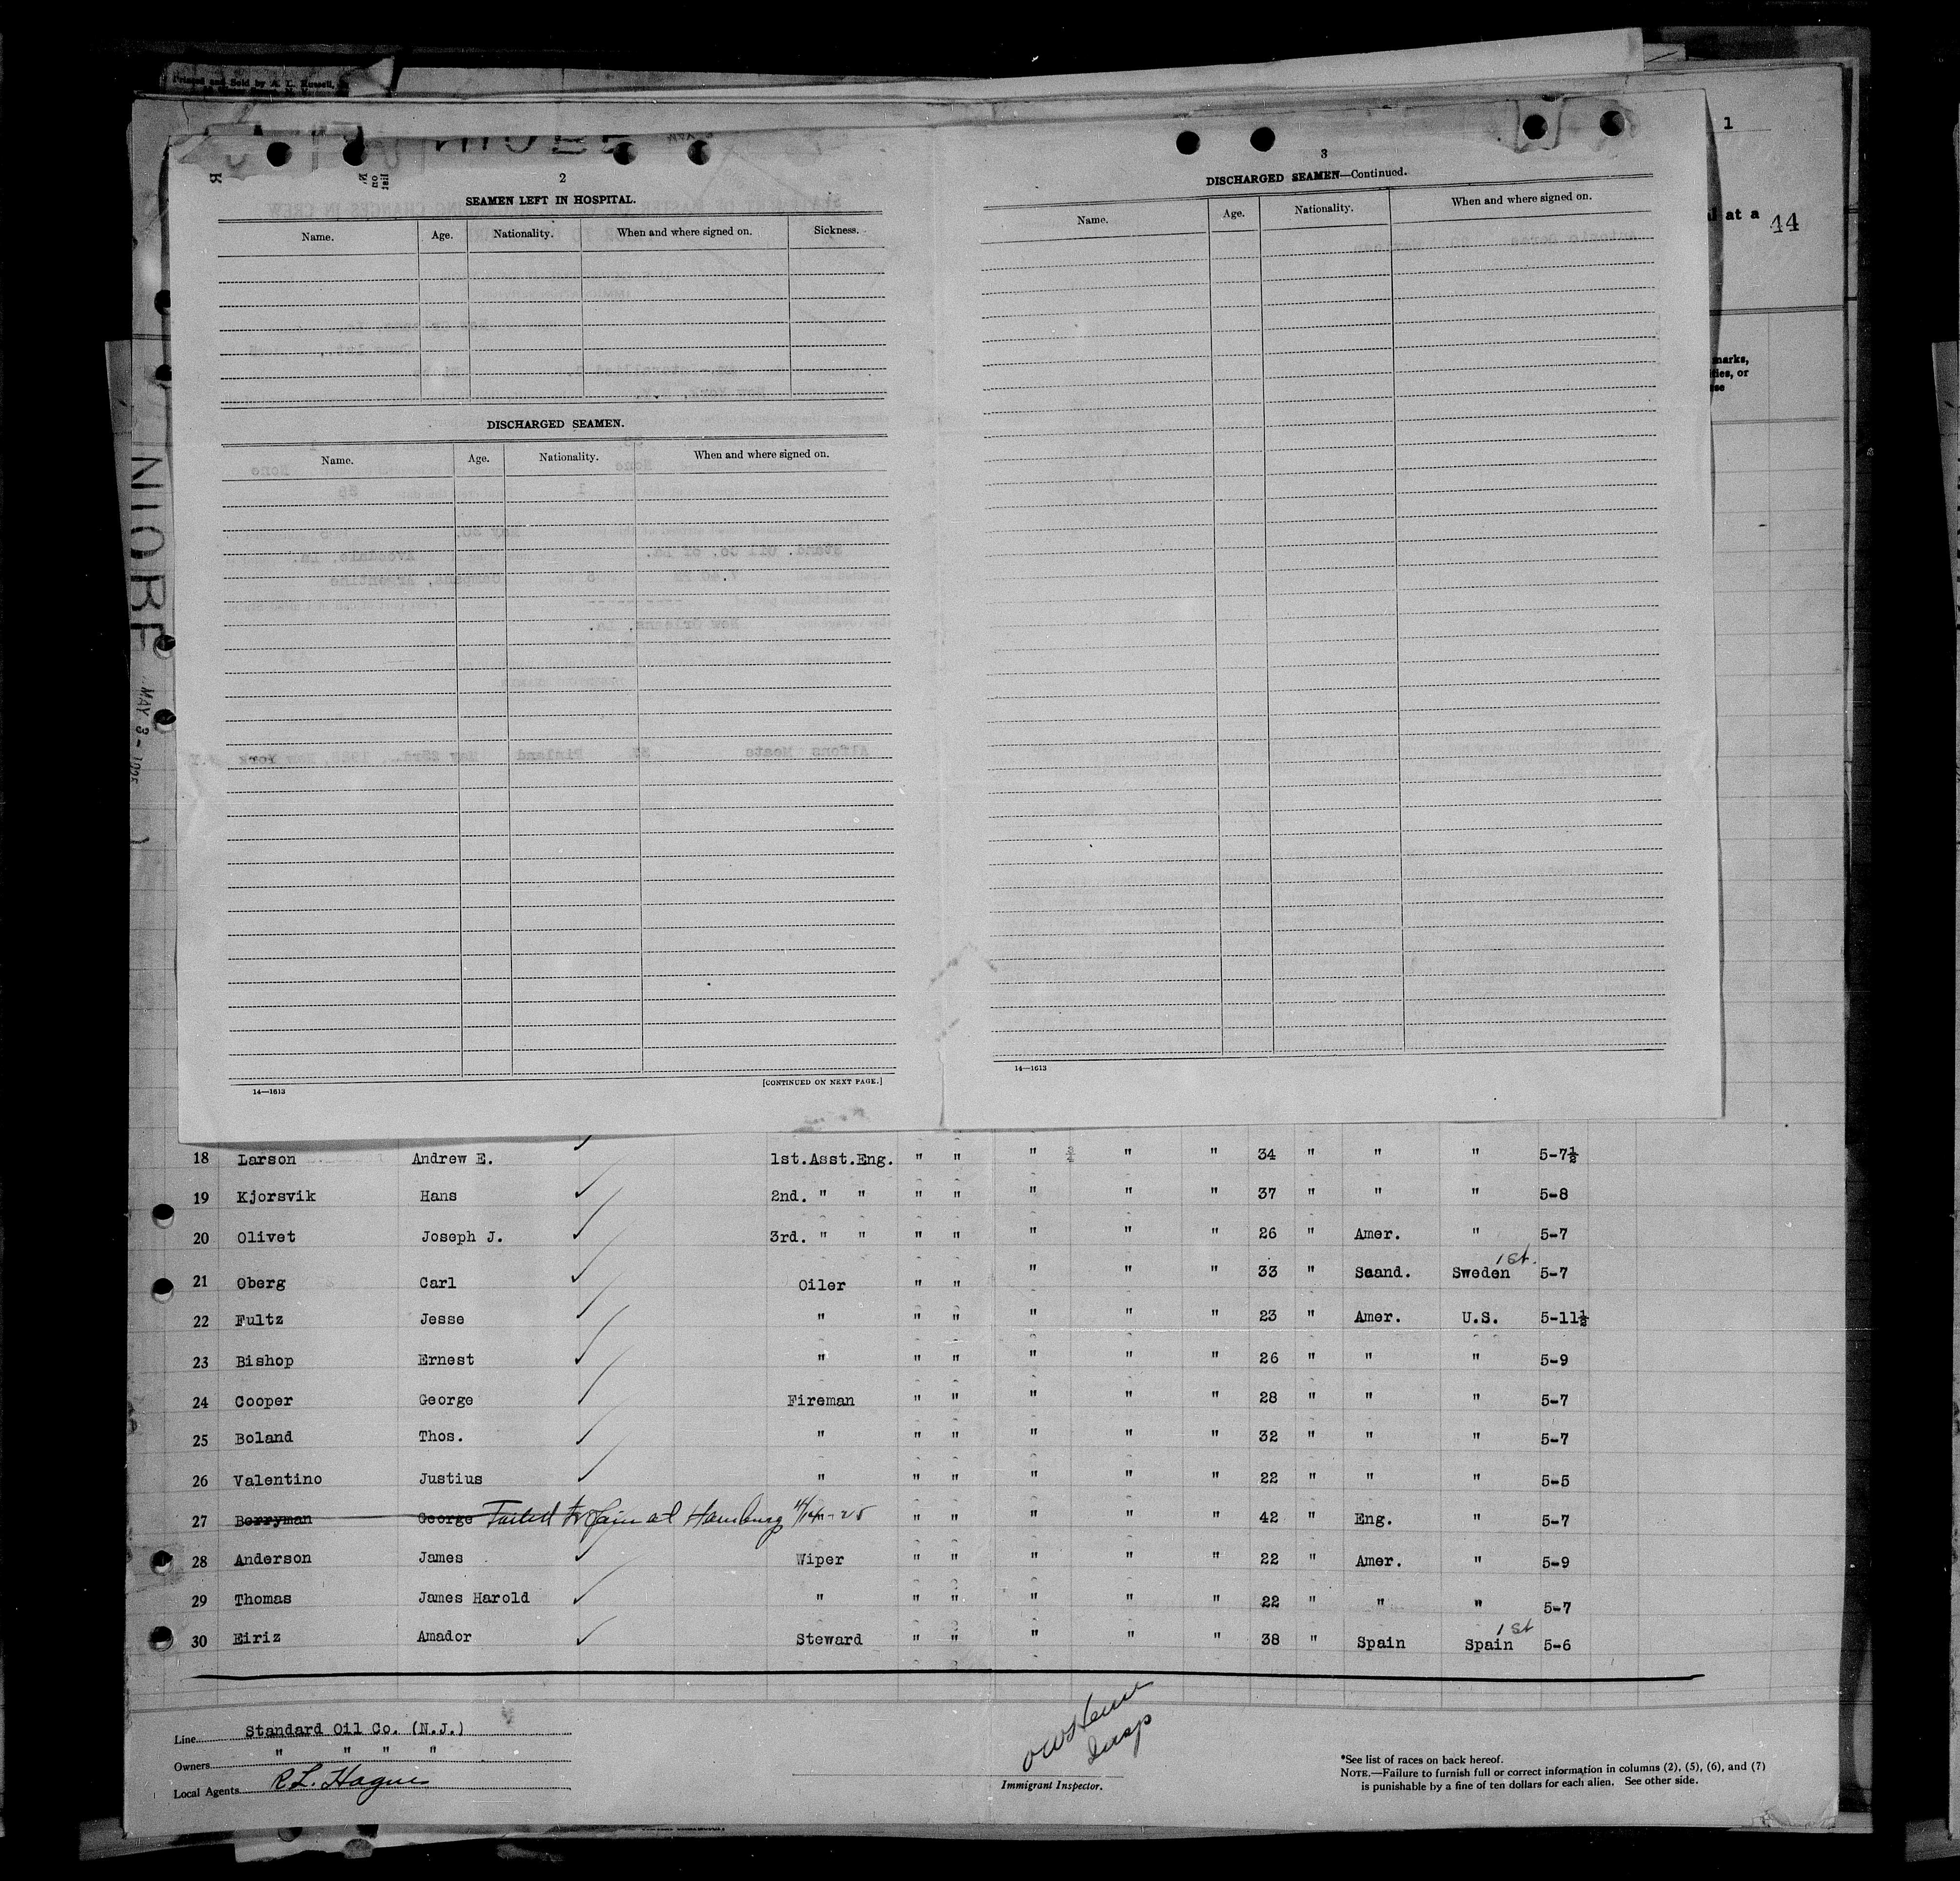 Printed and Sold by A. L. Russell,
1
al at a 44
marks,
ities, or
NIOBE
MAY 3-1925
2
SEAMEN LEFT IN HOSPITAL.
Name. Age. Nationality. When and where signed on. Sickness.
DISCHARGED SEAMEN.
Name. Age. Nationality. When and where signed on.
14—1613 [CONTINUED ON NEXT PAGE.]
3
DISCHARGED SEAMEN—Continued.
Name. Age. Nationality. When and where signed on.
14—1613
18 Larson Andrew E. 1st.Asst.Eng. " " " 3/4 " " 34 " " " 5-7½
19 Kjorsvik Hans 2nd. " " " " " " " 37 " " " 5-8
20 Olivet Joseph J. 3rd. " " " " " " " 26 " Amer. " 5-7
21 Oberg Carl Oiler " " " " " 33 " Scand. Sweden 1st. 5-7
22 Fultz Jesse " " " " " " 23 " Amer. U.S. 5-11½
23 Bishop Ernest " " " " " " 26 " " " 5-9
24 Cooper George Fireman " " " " " 28 " " " 5-7
25 Boland Thos. " " " " " " 32 " " " 5-7
26 Valentino Justius " " " " " " 22 " " " 5-5
27 Berryman George Failed to Join at Hamburg 4/14-25 " " " " " 42 " Eng. " 5-7
28 Anderson James Wiper " " " " " 22 " Amer. " 5-9
29 Thomas James Harold " " " " " " 22 " " " 5-7
30 Eiriz Amador Steward " " " " " 38 " Spain Spain 1st 5-6
Line Standard Oil Co. (N.J.)
Owners " " " "
Local Agents R.L. Hague
Insp
Immigrant Inspector.
*See list of races on back hereof.
NOTE.—Failure to furnish full or correct information in columns (2), (5), (6), and (7)
is punishable by a fine of ten dollars for each alien. See other side.